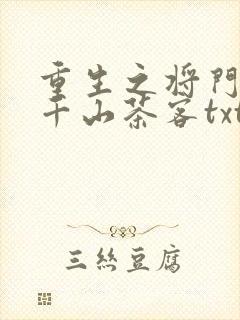 重生之将門
千山茶客txt
三絲豆腐